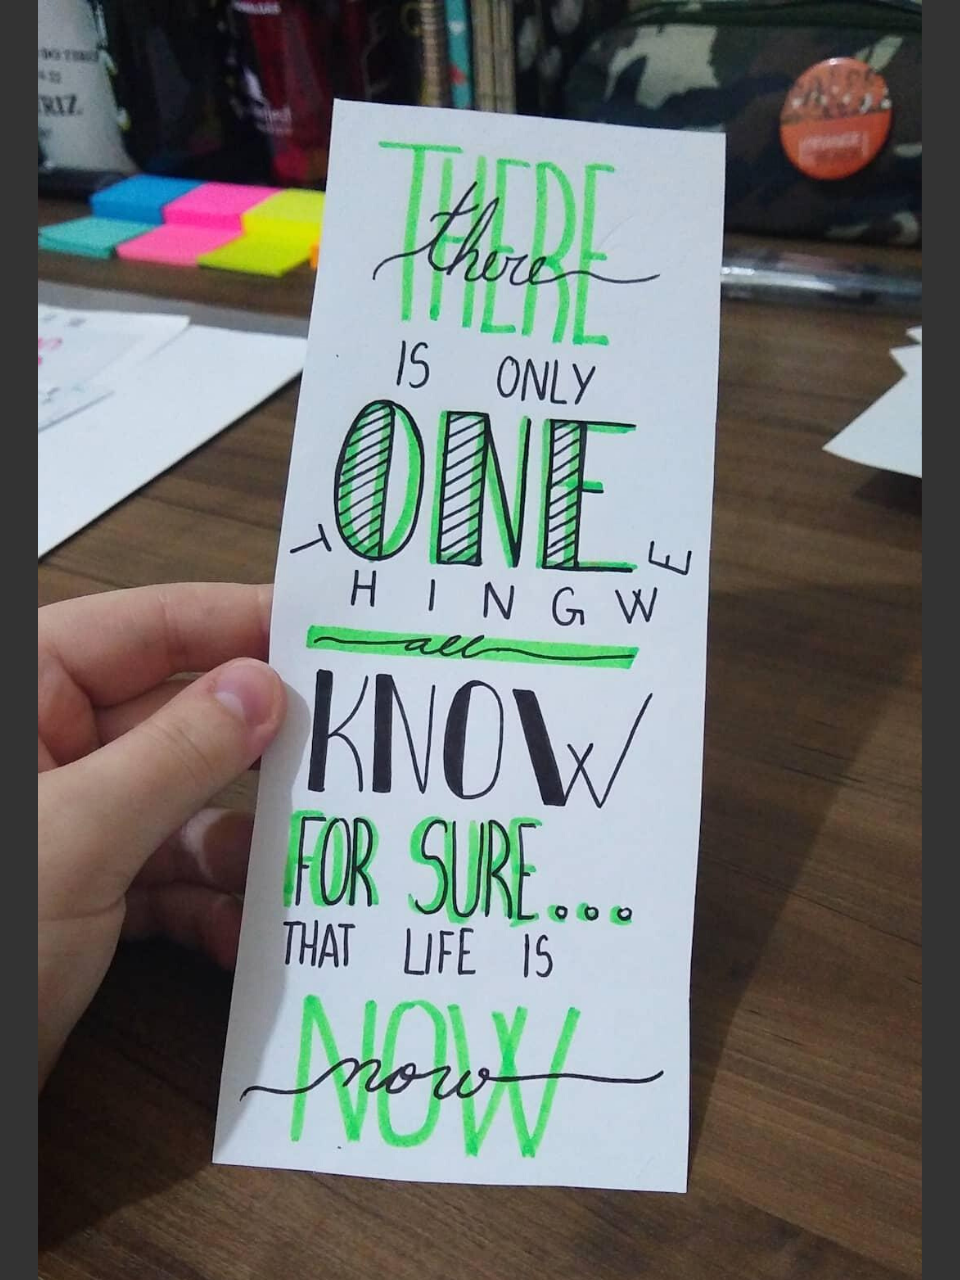 THERE
there
IS ONLY
ONE
THING WE
all
KNOW
FOR SURE...
THAT LIFE IS
NOW
now
TRIZ